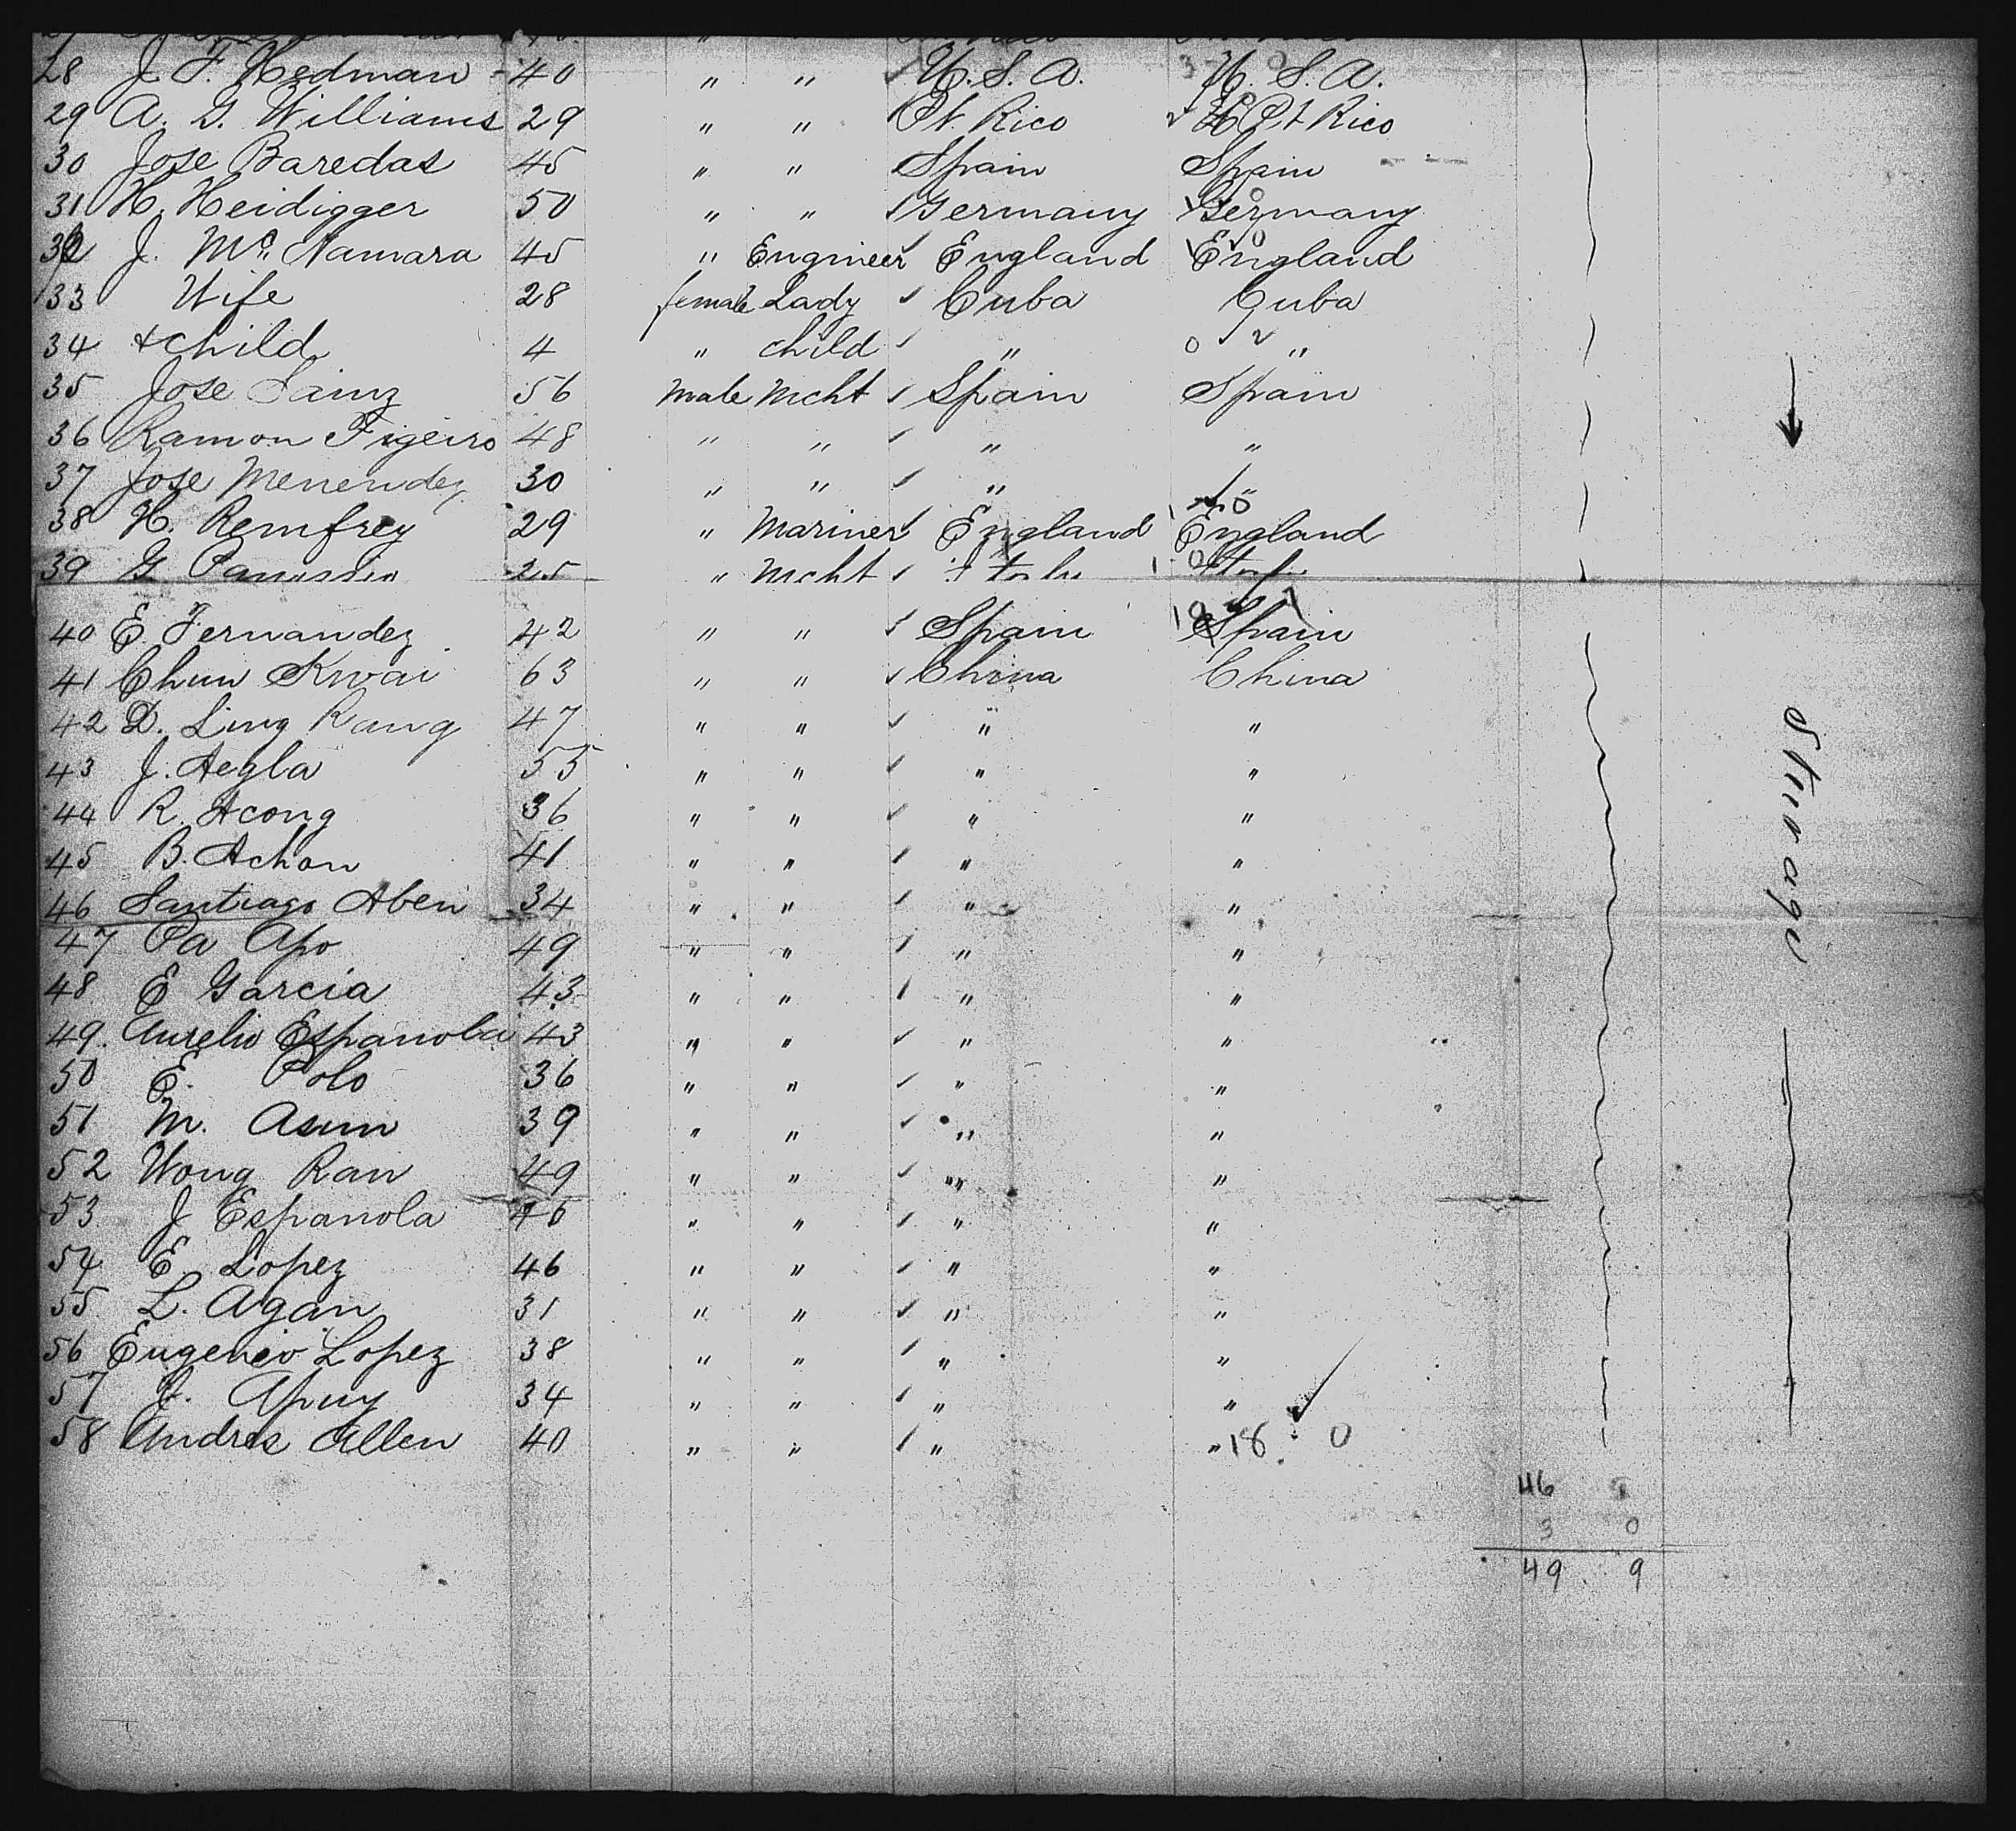 28 J. F. Hedman 40 " " U.S.A. 3 U.S.A.
29 A. G. Williams 29 " " Pt. Rico Pt Rico
30 Jose Baredas 45 " " Spain Spain
31 H. Heidigger 50 " " Germany Germany
32 J. Mc Namara 45 " Engineer England England
33 Wife 28 female Lady Cuba Cuba
34 + child 4 " child " "
35 Jose Sainz 56 male Mcht Spain Spain
36 Ramon Figeiro 48 " " " "
37 Jose Menendez 30 " " " "
38 H. Remfrey 29 " Mariner England England
39 G. 25 " Mcht
40 E. Fernandez 42 " " Spain Spain
41 Chun Kwai 63 " " China China
42 D. Ling Kang 47 " " " "
43 J. Aegla 55 " " " "
44 R. Acong 36 " " " "
45 B. Achon 41 " " " "
46 Santiago Aben 34 " " " "
47 Pa Apo 49 " " " "
48 E Garcia 43 " " " "
49. Aurelio Espanola 43 " " " "
50 E. Polo 36 " " " "
51 M. Asum 39 " " " "
52 Wong Ran 49 " " " "
53 J Espanola 46 " " " "
54 E. Lopez 46 " " " "
55 L. Agan 31 " " " "
56 Eugenio Lopez 38 " " " "
57 Apuy 34 " " " "
58 Andres Allen 40 " " " " 18 0
46
3 0
49 9